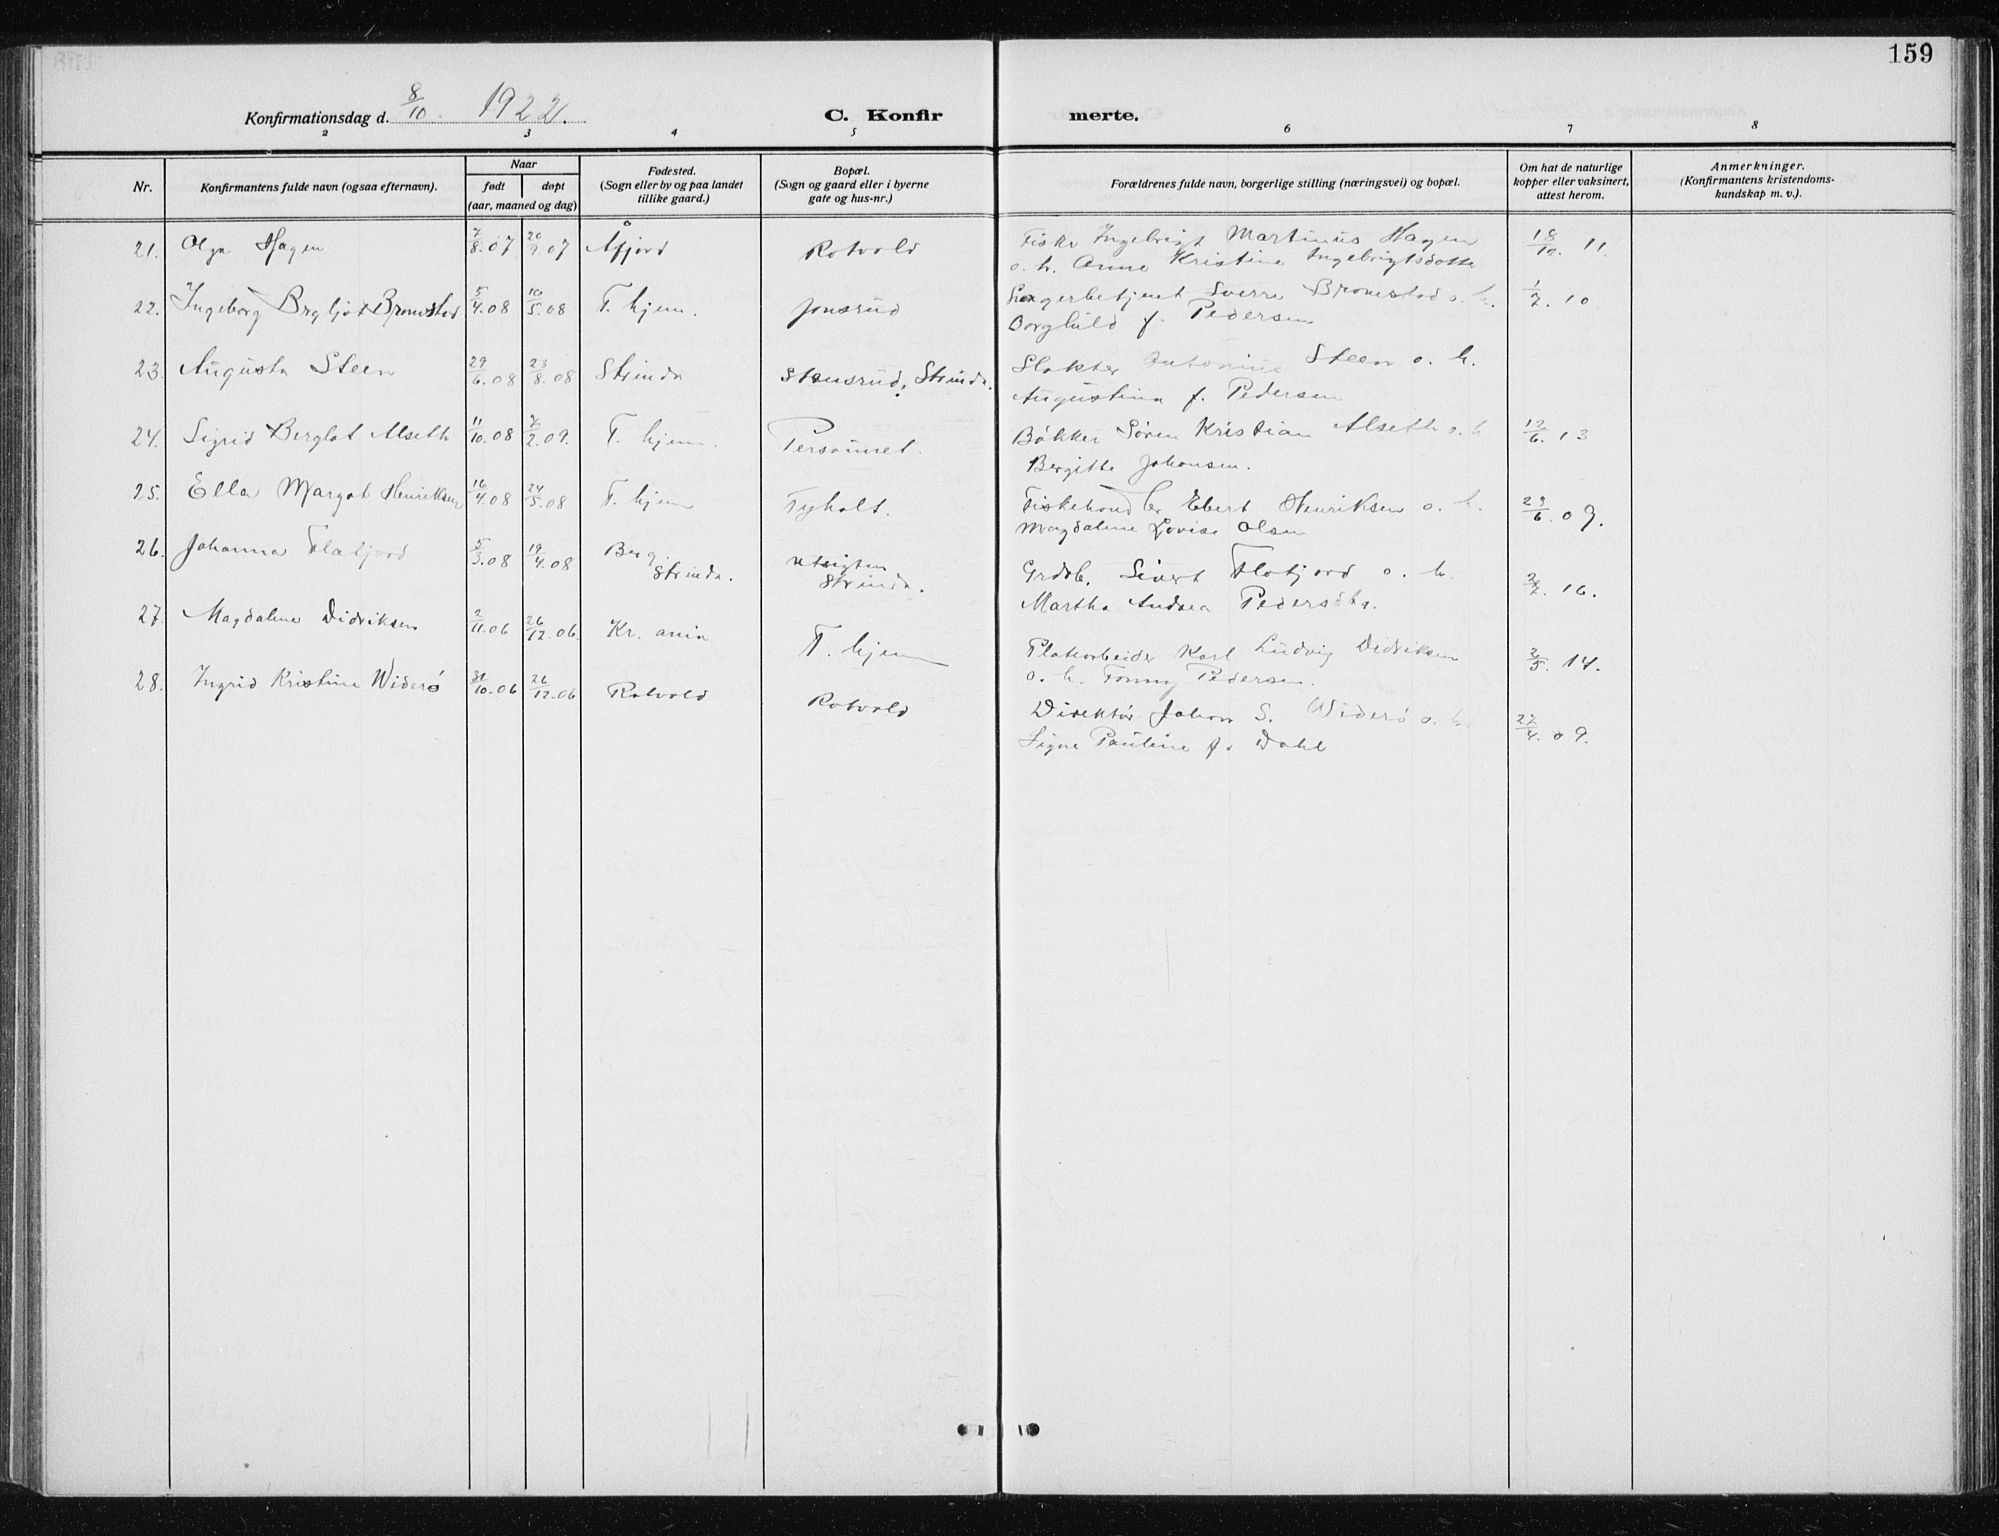 159
Konfirmationsdag d. 8/10. 1922.
C. Konfirmerte.
2 3 4 5 6 7 8
Nr.
Konfirmantens fulde navn (ogsaa efternavn).
Naar
født døpt
(aar, maaned og dag)
Fødested.
(Sogn eller by og paa landet
tillike gaard.)
Bopæl.
(Sogn og gaard eller i byerne
gate og hus-nr.)
Forældrenes fulde navn, borgerlige stilling (næringsvei) og bopæl.
Om hat de naturlige
kopper eller vaksinert,
attest herom.
Anmerkninger.
(Konfirmantens kristendoms-
kundskap m. v.).
21. Olga Hagen 7/8.07 20/9.07 Åfjord Rotvold Fisker Ingebrigt Martinus Hagen 18/10. 11.
o. h. Anne Kristine Ingebrigtsdotte
22. Ingeborg Bergljot Bromstad 5/4.08 10/5.08 T. hjem. Jonsrud Lagerbetjent Sverre Bromstad o. h. 1/7. 10
Borghild f. Pedersen
23. Augusta Steen 29/6.08 23/8.08 Strinda Stensrud, Strinda. Slakter Antonius Steen o. h.
Augustina f. Pedersen
24. Sigrid Berglot Alseth 11/10.08 7/2.09. T. hjem. Persaunet. Bøkker Søren Kristian Alseth o. h 12/6. 13
Bergitte Johansen.
25. Ella Margot Henriksen 16/4.08 24/5.08 T. hjem Tyholt. Fiskehandler Ebert Henriksen o. h. 29/6. 09.
Magdalene Lovise Olsen
26. Johanna Flatjord 5/3.08 19/4.08 Berg Strinda. Utsigten Strinda. Grdb. Sivert Flatjord o. h. 16.
Martha Andrea Pedersdtr.
27. Magdalene Didriksen 2/11.06 26/12.06. Kr. ania T. hjem Platearbeider Karl Ludvig Didriksen 3/5. 14.
o. h. Fanny Pedersen.
28. Ingrid Kristine Widerø 31/10.06 26/12.06 Rotvold Rotvold Direktør Johan S. Widerø o. h. 27/4. 09.
Signe Pauline f. Dahl